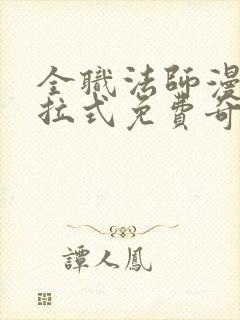 全職法師漫
拉式免費奇
譚人鳳